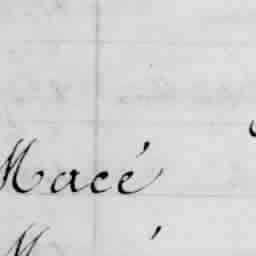 Macé